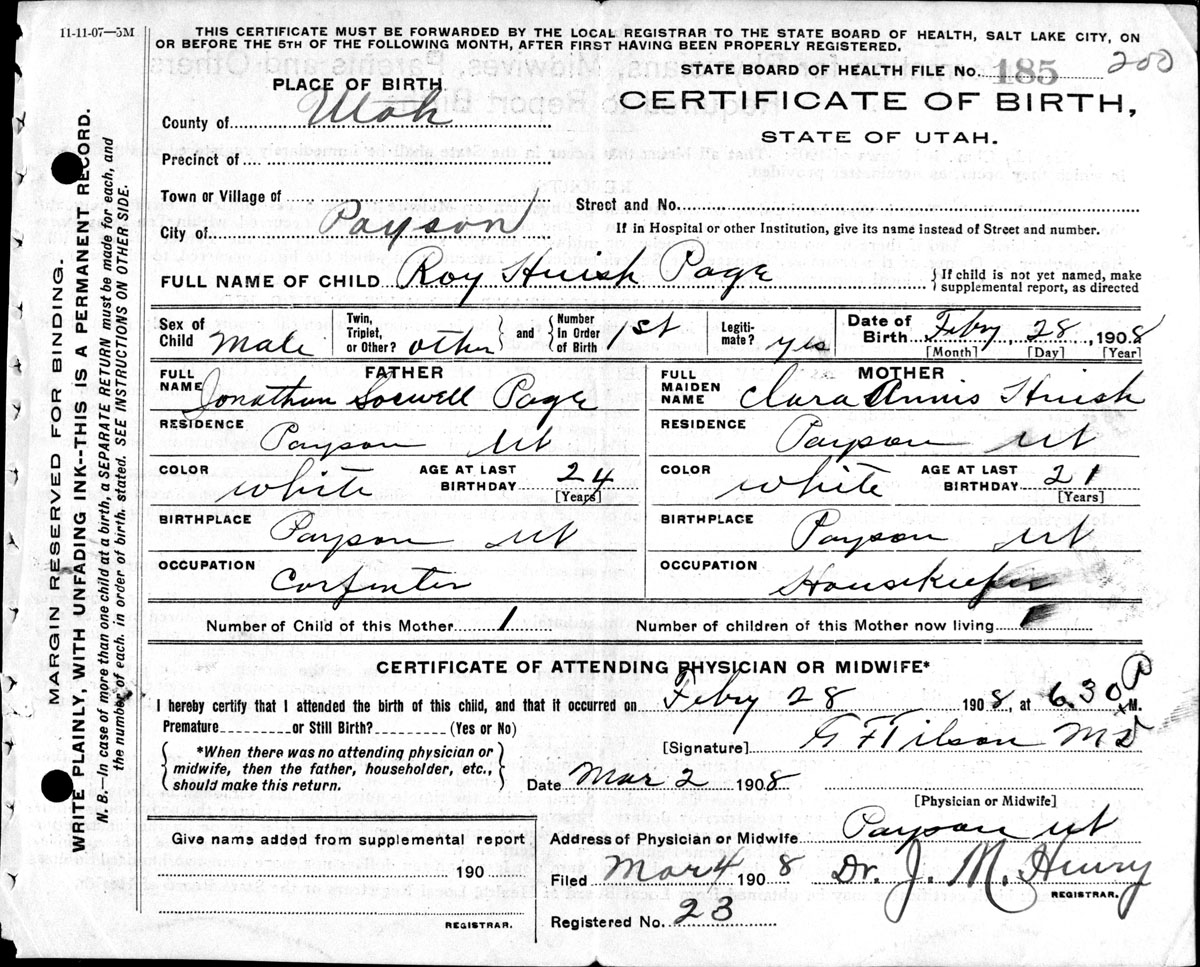 11-11-07—5M
THIS CERTIFICATE MUST BE FORWARDED BY THE LOCAL REGISTRAR TO THE STATE BOARD OF HEALTH, SALT LAKE CITY, ON
OR BEFORE THE 5TH OF THE FOLLOWING MONTH, AFTER FIRST HAVING BEEN PROPERLY REGISTERED.
STATE BOARD OF HEALTH FILE No. 185 200
PLACE OF BIRTH.
CERTIFICATE OF BIRTH,
STATE OF UTAH.
County of Utah
Precinct of
Town or Village of
Street and No.
City of Payson
If in Hospital or other Institution, give its name instead of Street and number.
FULL NAME OF CHILD Roy Huish Page
{ If child is not yet named, make
supplemental report, as directed
Sex of Child Male
Twin, Triplet, or Other? other } and { Number In Order of Birth 1st
Legitimate? yes
Date of Birth Feby 28, 1908
[Month] [Day] [Year]
FATHER
FULL NAME Jonathan Socwell Page
MOTHER
FULL MAIDEN NAME Clara Annis Huish
RESIDENCE Payson Ut
RESIDENCE Payson Ut
COLOR white AGE AT LAST BIRTHDAY 24 [Years]
COLOR white AGE AT LAST BIRTHDAY 21 [Years]
BIRTHPLACE Payson Ut
BIRTHPLACE Payson Ut
OCCUPATION Carpenter
OCCUPATION Housekeeper
Number of Child of this Mother 1
Number of children of this Mother now living 1
CERTIFICATE OF ATTENDING PHYSICIAN OR MIDWIFE*
I hereby certify that I attended the birth of this child, and that it occurred on Feby 28 1908, at 6.30 P M.
Premature or Still Birth? (Yes or No)
{ *When there was no attending physician or
midwife, then the father, householder, etc.,
should make this return. }
[Signature] G F Tilson MD
Date Mar 2 1908
[Physician or Midwife]
Give name added from supplemental report
190
REGISTRAR.
Address of Physician or Midwife Payson Ut
Filed Mar 4 1908 Dr. J. M. Henry
REGISTRAR.
Registered No. 23
MARGIN RESERVED FOR BINDING.
WRITE PLAINLY, WITH UNFADING INK--THIS IS A PERMANENT RECORD.
N. B.—In case of more than one child at a birth, a SEPARATE RETURN must be made for each, and
the number of each. in order of birth. stated. SEE INSTRUCTIONS ON OTHER SIDE.